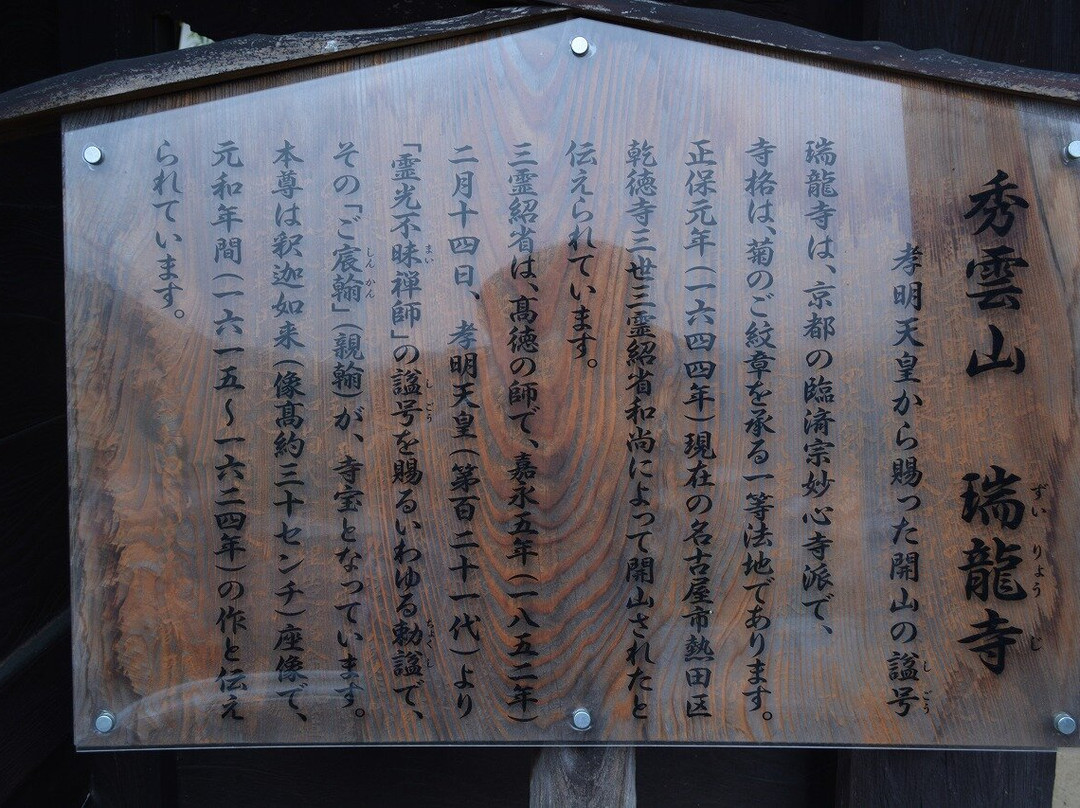 秀雲山　瑞龍寺
ずいりょうじ
孝明天皇から賜った開山の諡号
しごう
瑞龍寺は、京都の臨済宗妙心寺派で、
寺格は、菊のご紋章を承る一等法地であります。
正保元年(一六四四年)現在の名古屋市熱田区
乾徳寺三世三霊紹省和尚によって開山されたと
伝えられています。
三霊紹省は、髙徳の師で、嘉永五年(一八五二年)
二月十四日、孝明天皇(第百二十一代)より
「霊光不昧禅師」の諡号を賜るいわゆる勅諡で、
まい
しごう
ちょくし
その「ご宸翰」(親翰)が、寺宝となっています。
しんかん
本尊は釈迦如来(像髙約三十センチ)座像で、
元和年間(一六一五〜一六二四年)の作と伝え
られています。